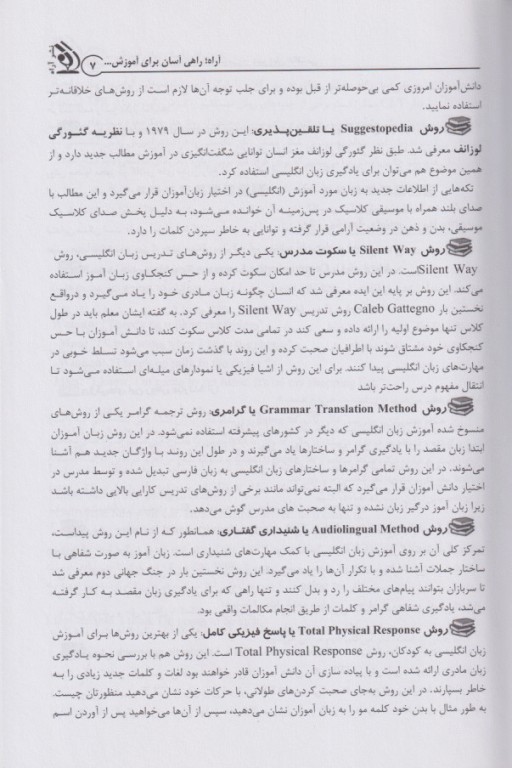 آراه؛ راهی آسان برای آموزش... ۷
دانش‌آموزان امروزی کمی بی‌حوصله‌تر از قبل بوده و برای جلب توجه آن‌ها لازم است از روش‌های خلاقانه‌تر
استفاده نمایید.
روش Suggestopedia یا تلقین‌پذیری: این روش در سال ۱۹۷۹ و با نظریه گئورگی
لوزانف معرفی شد. طبق نظر گئورگی لوزانف مغز انسان توانایی شگفت‌انگیزی در آموزش مطالب جدید دارد و از
همین موضوع هم می‌توان برای یادگیری زبان انگلیسی استفاده کرد.
تکه‌هایی از اطلاعات جدید به زبان مورد آموزش (انگلیسی) در اختیار زبان‌آموزان قرار می‌گیرد و این مطالب با
صدای بلند همراه با موسیقی کلاسیک در پس‌زمینه آن خوانده می‌شود، به دلیل پخش صدای کلاسیک
موسیقی، بدن و ذهن در وضعیت آرامی قرار گرفته و توانایی به خاطر سپردن کلمات را دارد.
روش Silent Way یا سکوت مدرس: یکی دیگر از روش‌های تدریس زبان انگلیسی، روش
Silent Wayاست. در این روش مدرس تا حد امکان سکوت کرده و از حس کنجکاوی زبان آموز استفاده
می‌کند. این روش بر پایه این ایده معرفی شد که انسان چگونه زبان مادری خود را یاد می‌گیرد و درواقع
نخستین بار Caleb Gattegno روش تدریس Silent Way را معرفی کرد، به گفته ایشان معلم باید در طول
کلاس تنها موضوع اولیه را ارائه داده و سعی کند در تمامی مدت کلاس سکوت کند، تا دانش آموزان با حس
کنجکاوی خود مشتاق شوند با اطرافیان صحبت کرده و این روند با گذشت زمان سبب می‌شود تسلط خوبی در
مهارت‌های زبان انگلیسی پیدا کنند. برای این روش از اشیا فیزیکی یا نمودارهای میله‌ای استفاده می‌شود تا
انتقال مفهوم درس راحت‌تر باشد
روش Grammar Translation Method یا گرامری: روش ترجمه گرامر یکی از روش‌های
منسوخ شده آموزش زبان انگلیسی که دیگر در کشورهای پیشرفته استفاده نمی‌شود. در این روش زبان آموزان
ابتدا زبان مقصد را با یادگیری گرامر و ساختارها یاد می‌گیرند و در طول این روند با واژگان جدید هم آشنا
می‌شوند. در این روش تمامی گرامرها و ساختارهای زبان انگلیسی به زبان فارسی تبدیل شده و توسط مدرس در
اختیار دانش آموزان قرار می‌گیرد که البته نمی‌تواند مانند برخی از روش‌های تدریس کارایی بالایی داشته باشد
زیرا زبان آموز درگیر زبان نشده و تنها به صحبت های مدرس گوش می‌دهد.
روش Audiolingual Method یا شنیداری گفتاری: همانطور که از نام این روش پیداست،
تمرکز کلی آن بر روی آموزش زبان انگلیسی با کمک مهارت‌های شنیداری است. زبان آموز به صورت شفاهی با
ساختار جملات آشنا شده و با تکرار آن‌ها را یاد می‌گیرد. این روش نخستین بار در جنگ جهانی دوم معرفی شد
تا سربازان بتوانند پیام‌های مختلف را رد و بدل کنند و تنها راهی که برای یادگیری زبان مقصد به کار گرفته
می‌شد، یادگیری شفاهی گرامر و کلمات از طریق انجام مکالمات واقعی بود.
روش Total Physical Response یا پاسخ فیزیکی کامل: یکی از بهترین روش‌ها برای آموزش
زبان انگلیسی به کودکان، روش Total Physical Response است. این روش هم با بررسی نحوه یادگیری
زبان مادری ارائه شده است و با پیاده سازی آن دانش آموزان قادر خواهند بود لغات و کلمات جدید زیادی را به
خاطر بسپارند. در این روش به‌جای صحبت کردن‌های طولانی، با حرکات خود نشان می‌دهید منظورتان چیست.
به طور مثال با بدن خود کلمه مو را به زبان آموزان نشان می‌دهید، سپس از آن‌ها می‌خواهید پس از آوردن اسم